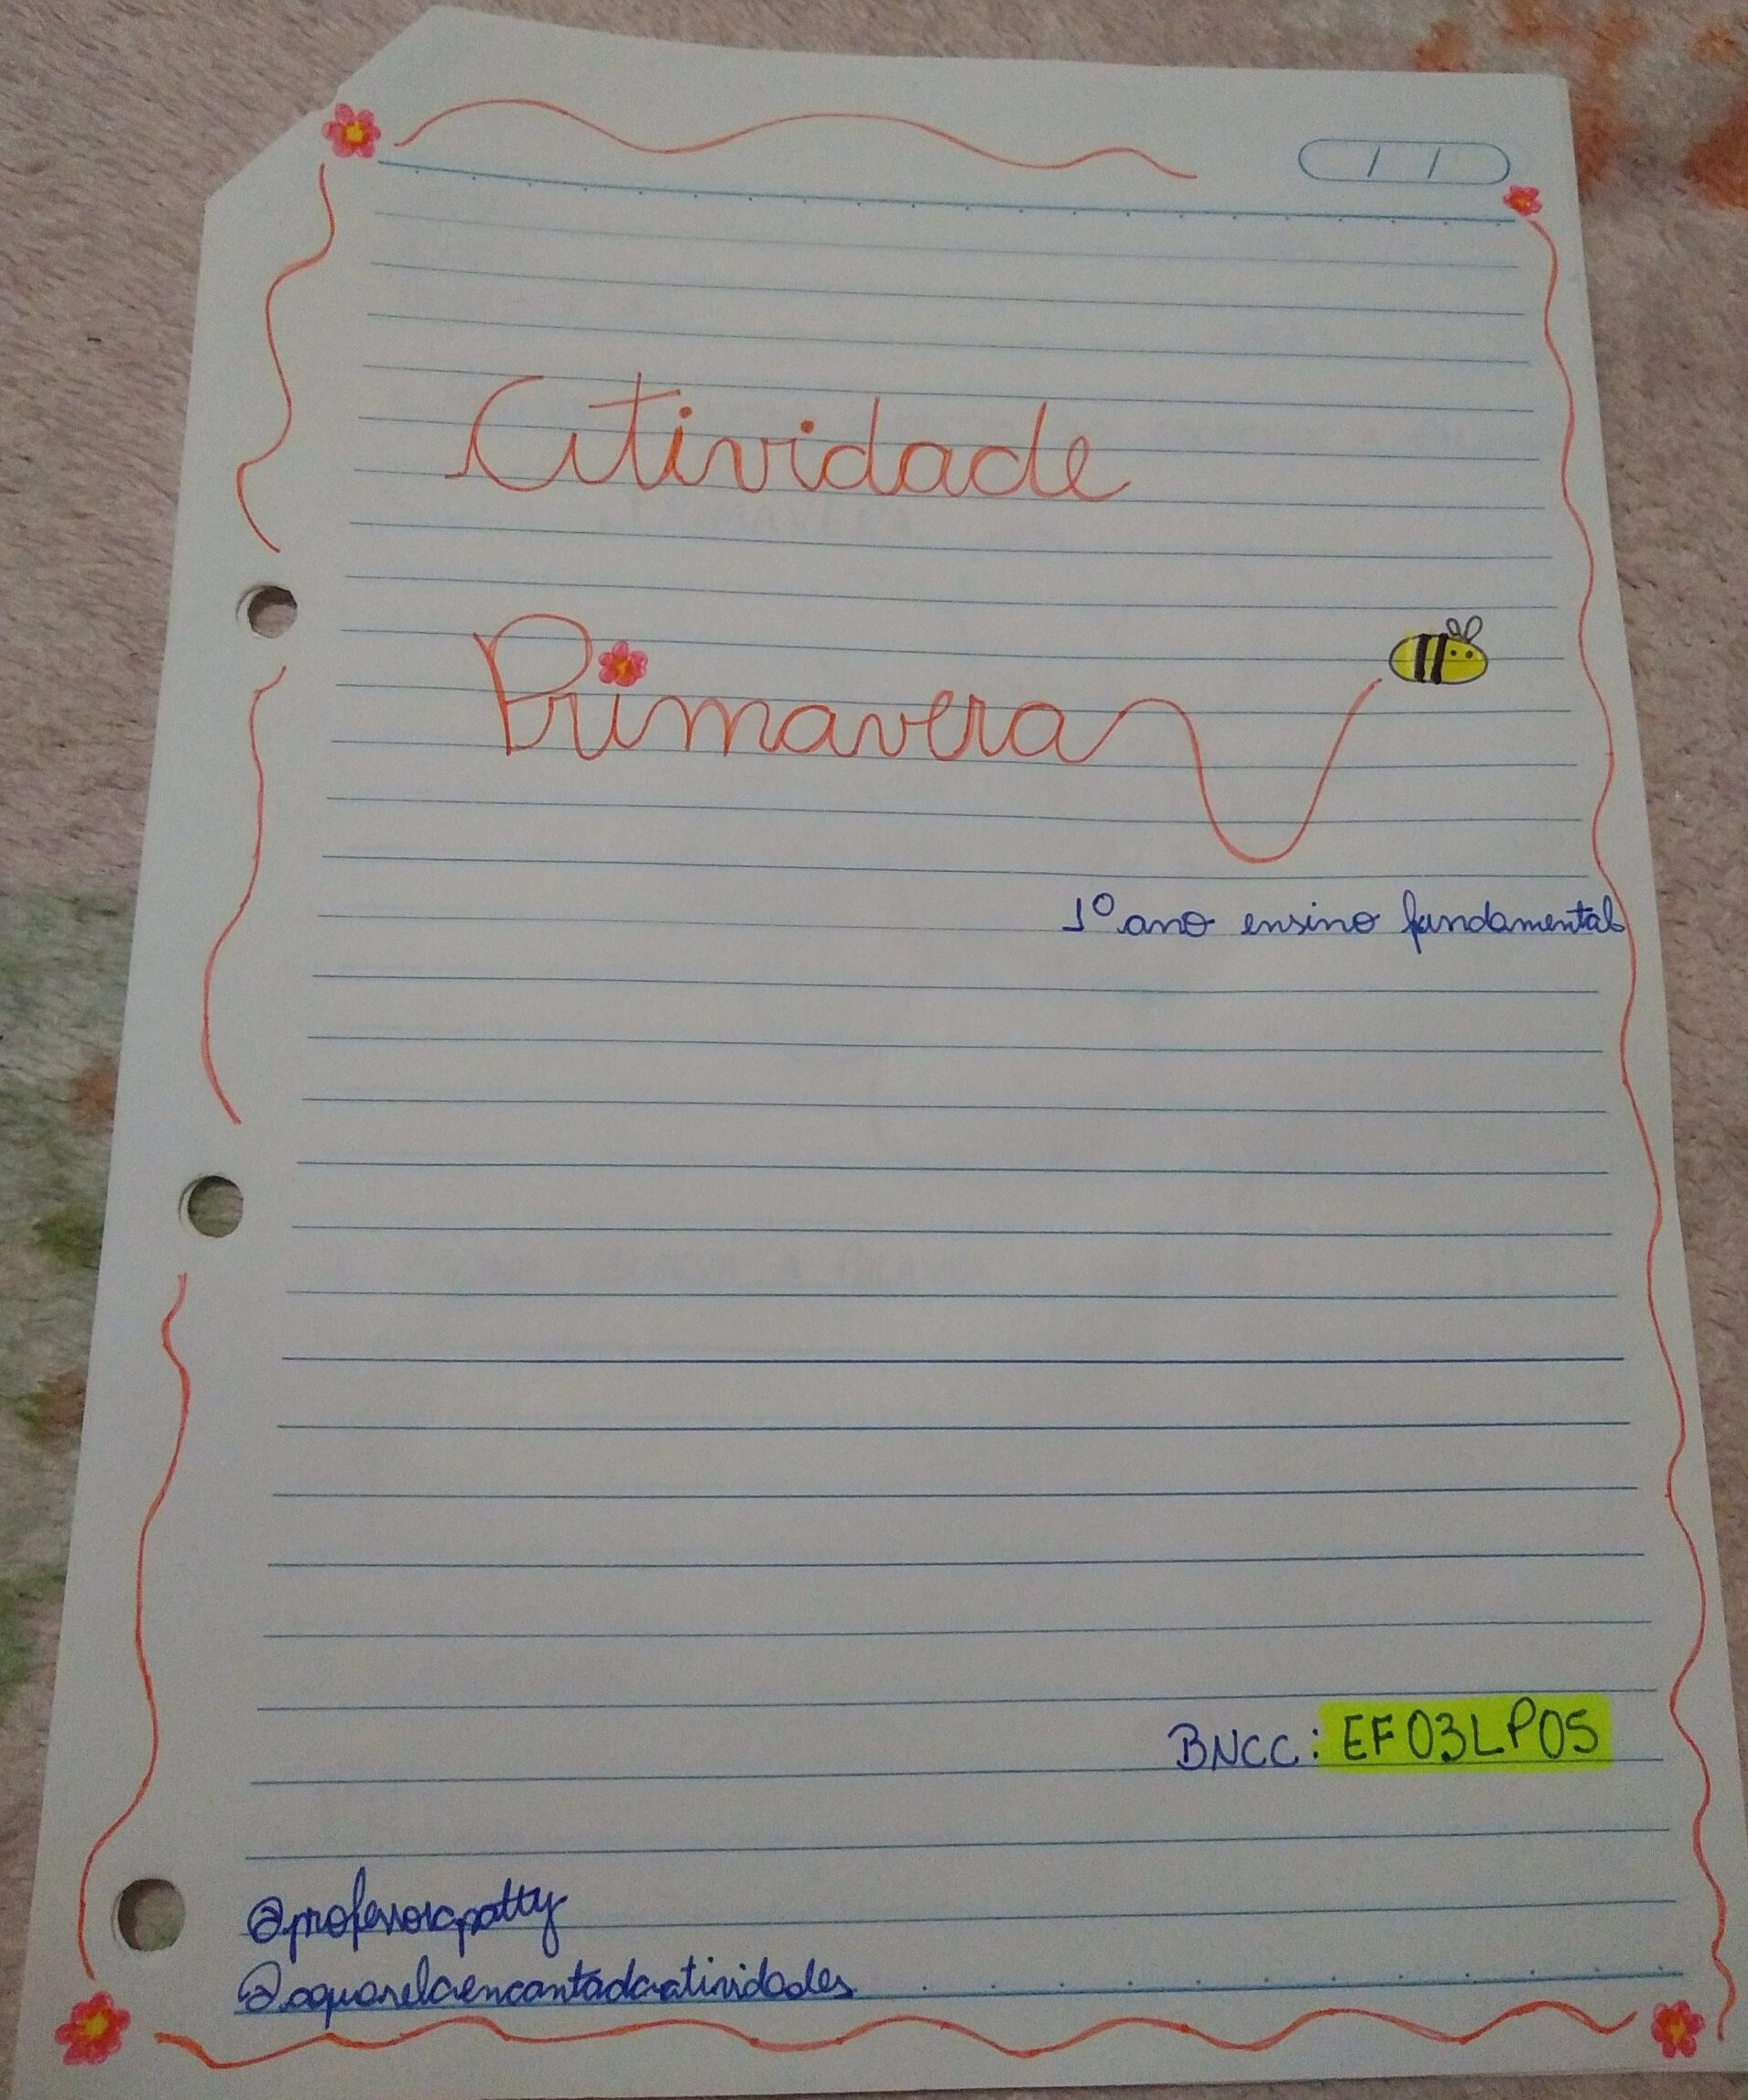 Atividade
Primavera
1º ano ensino fundamental
BNCC: EF03LP05
@professorapatty
@aquarelaencantadaatividades